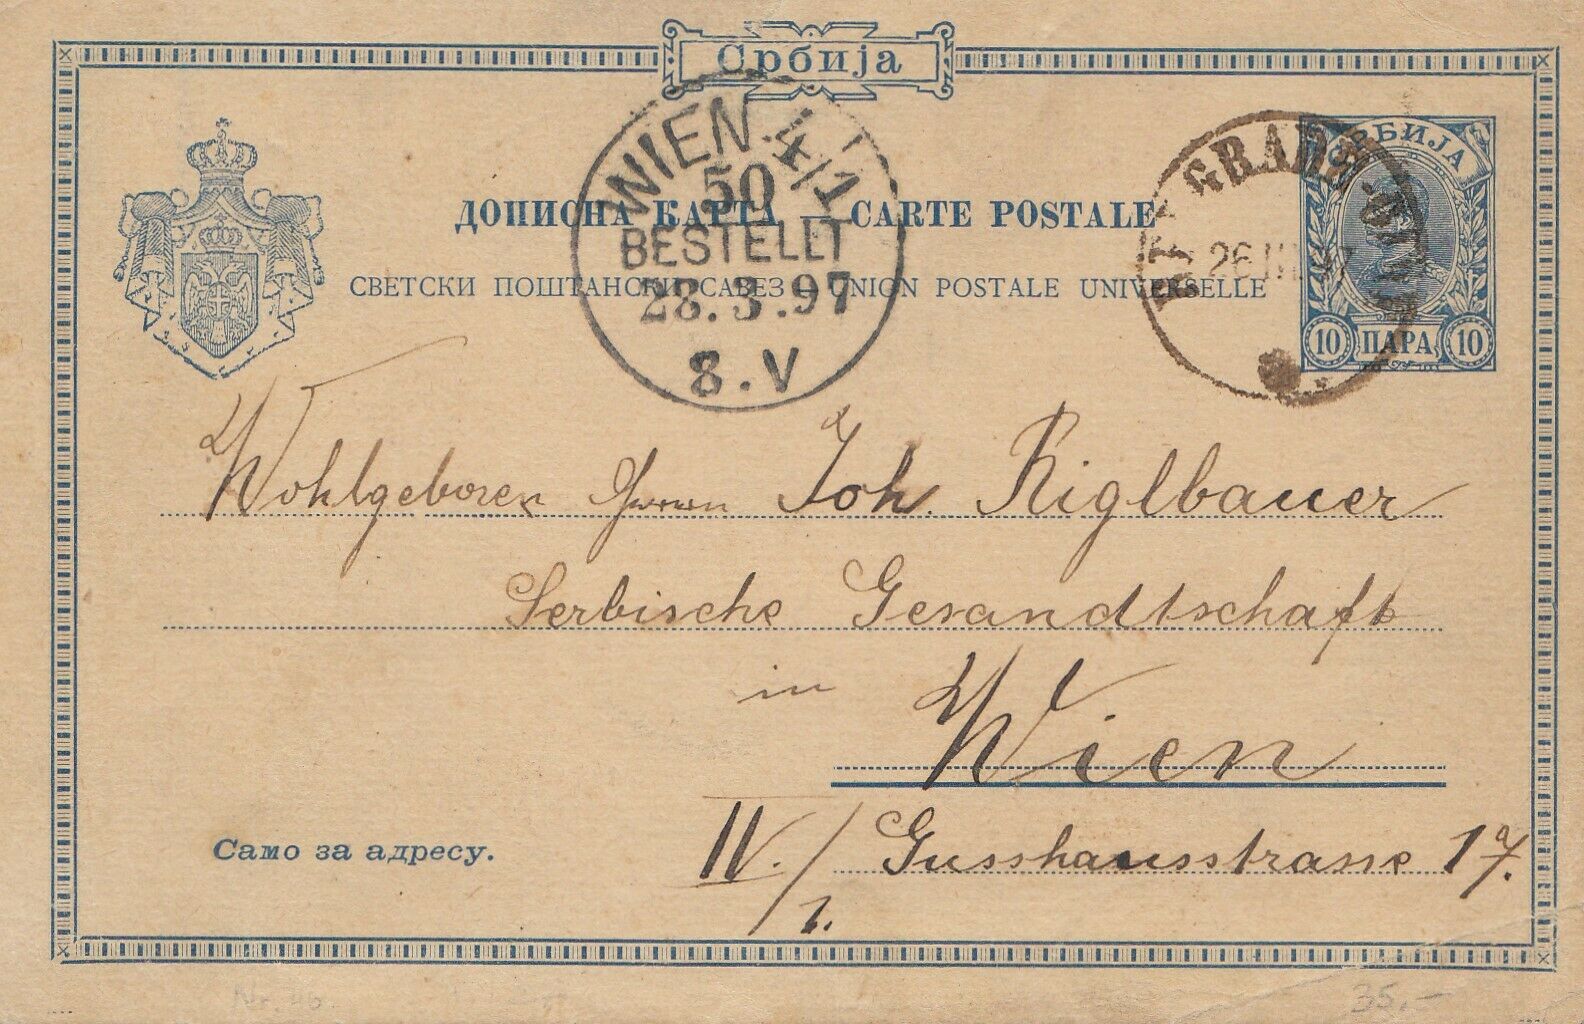 Србија
СРБИЈА
WIEN 4/1
50
BESTELLT
28.3.97
8.V
26 III 97
ДОПИСНА КАРТА — CARTE POSTALE
СВЕТСКИ ПОШТАНСКИ САВЕЗ — UNION POSTALE UNIVERSELLE
10 ПАРА 10
Wohlgeboren Herrn Joh. Riglbauer
Serbische Gesandtschaft
in Wien
IV./1. Gusshausstrasse 17.a
Само за адресу.
35,-